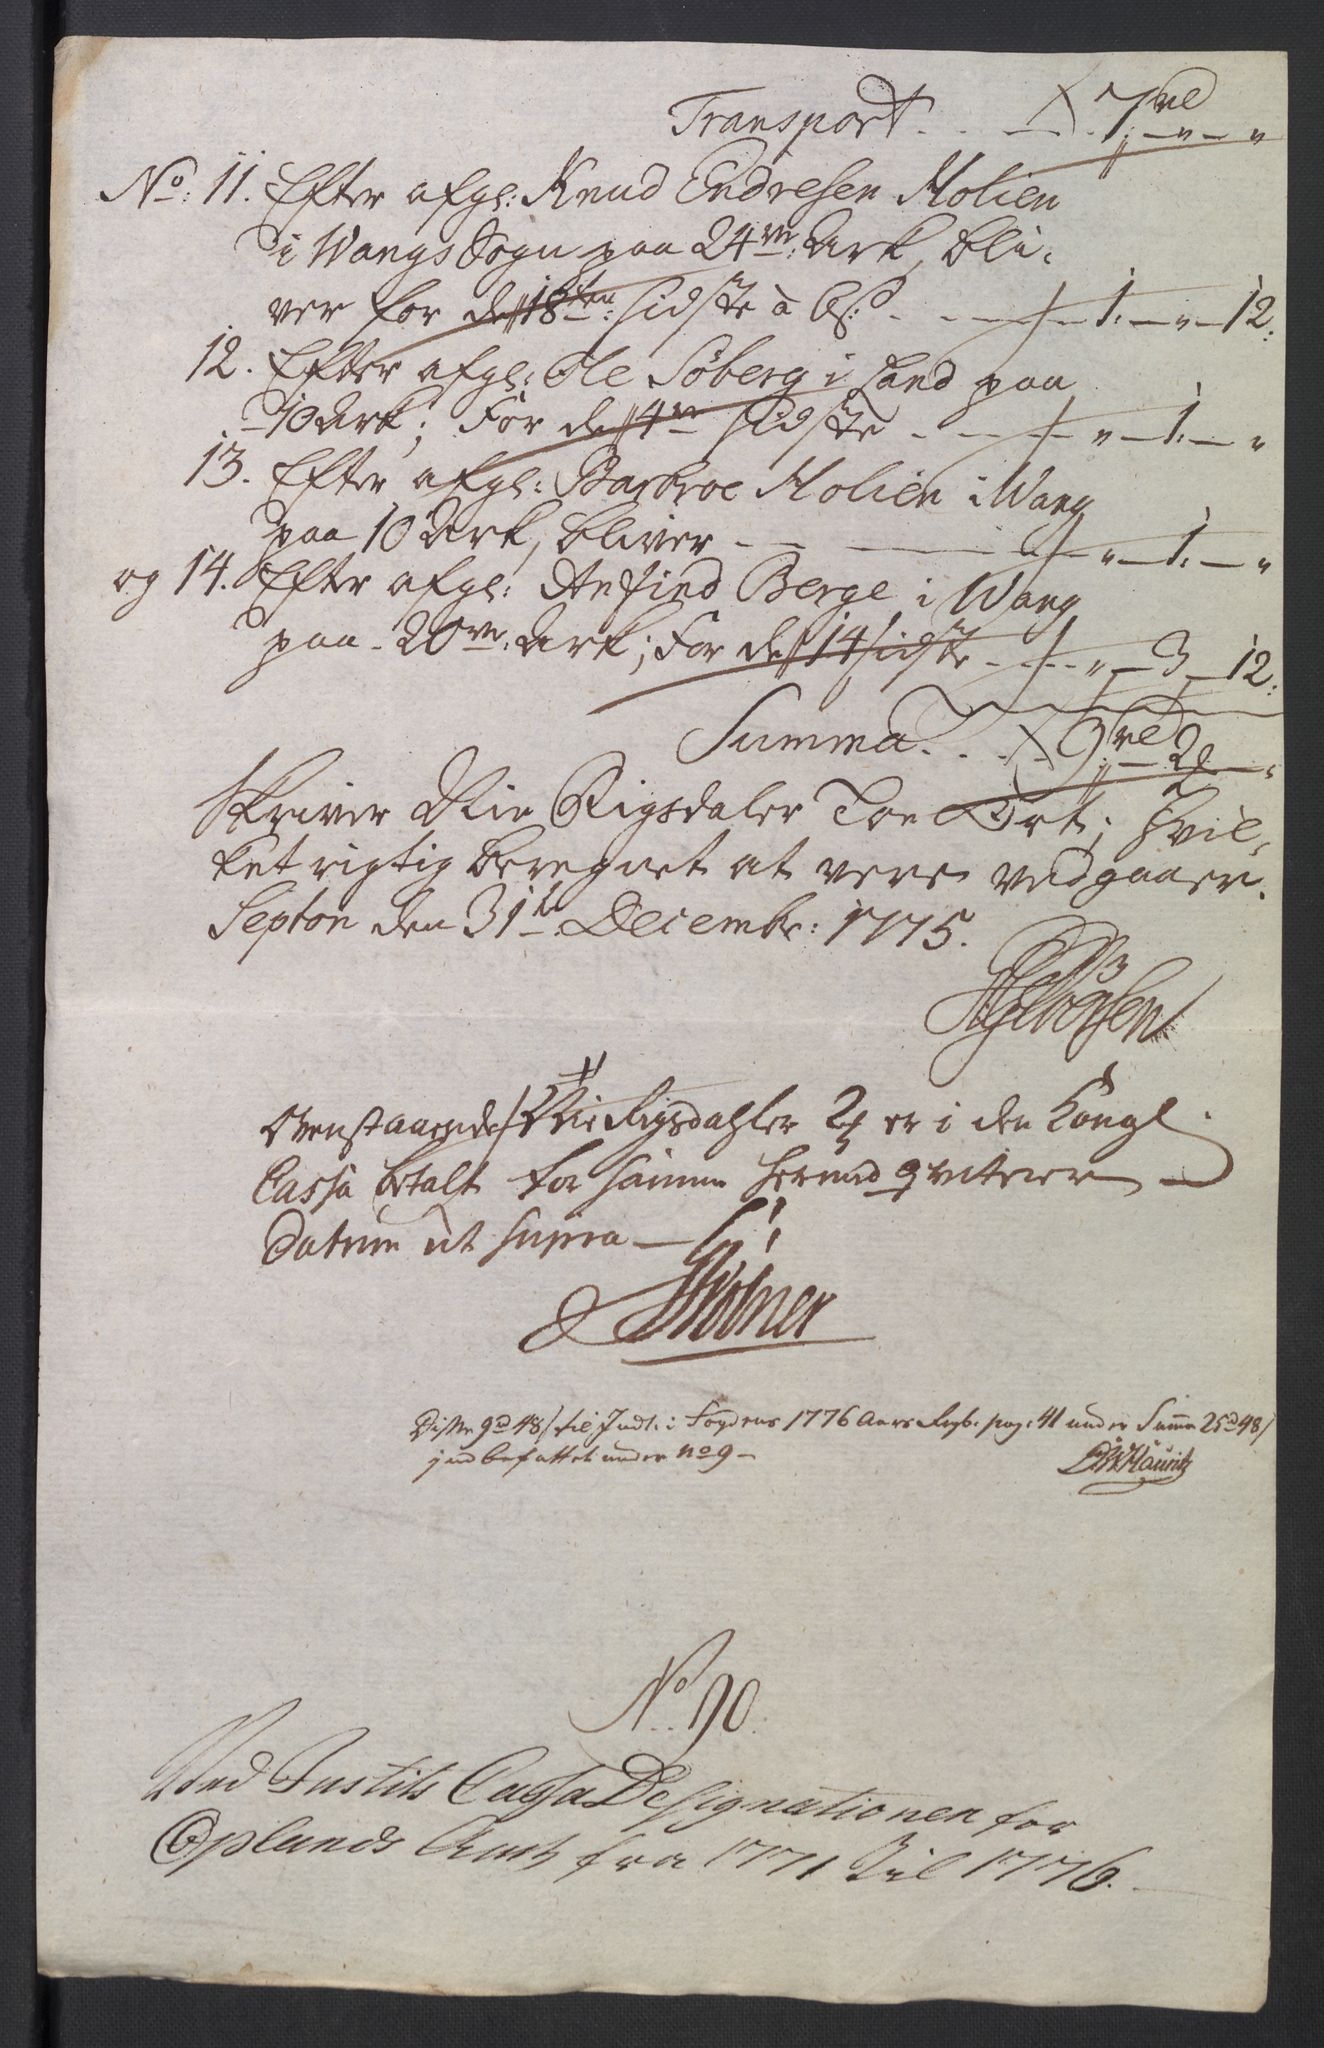 Transport . . — . 7 rd „ — „ — „
No: 11. Efter afgl: Knud Endresen Molien
i Wangs Sogn paa 24ve Ark, bli-
ver for de 18ten sidste à 6 s. . — 1. — „ — 12.
12. Efter afgl: Ole Søberg i Land paa
10 Ark; For de 4re sidste . — „ — 1. — „
13. Efter afgl: Barbroe Molien i Wang
paa 10 Ark, bliver — — „ — 1. — „
og 14. Efter afgl: Anfind Berge i Wang
paa 20ve Ark; For de 14 sidste . — „ — 3 — 12.
Summa . . . 9 rd — 2 — „
Skriver Nie Rigsdaler Toe Ort; hvil-
ket rigtig beregnet at være vedgaaer.
Septon den 31te Decembr: 1775.
Ovenstaaende Nie Rigsdahler 2 er i den Kongl
Cassa betalt for samme herved qviterer —
Datum ut supra —
Disse 9 d 48 s til Indt. i Fogdens 1776 Aars Regb. pag. 41 under Summ 25 d 48 s
indbefattet under No 9 —
No. 90.
Ved Justits Cassa Designationen for
Oplands Amt fra 1771 til 1776.